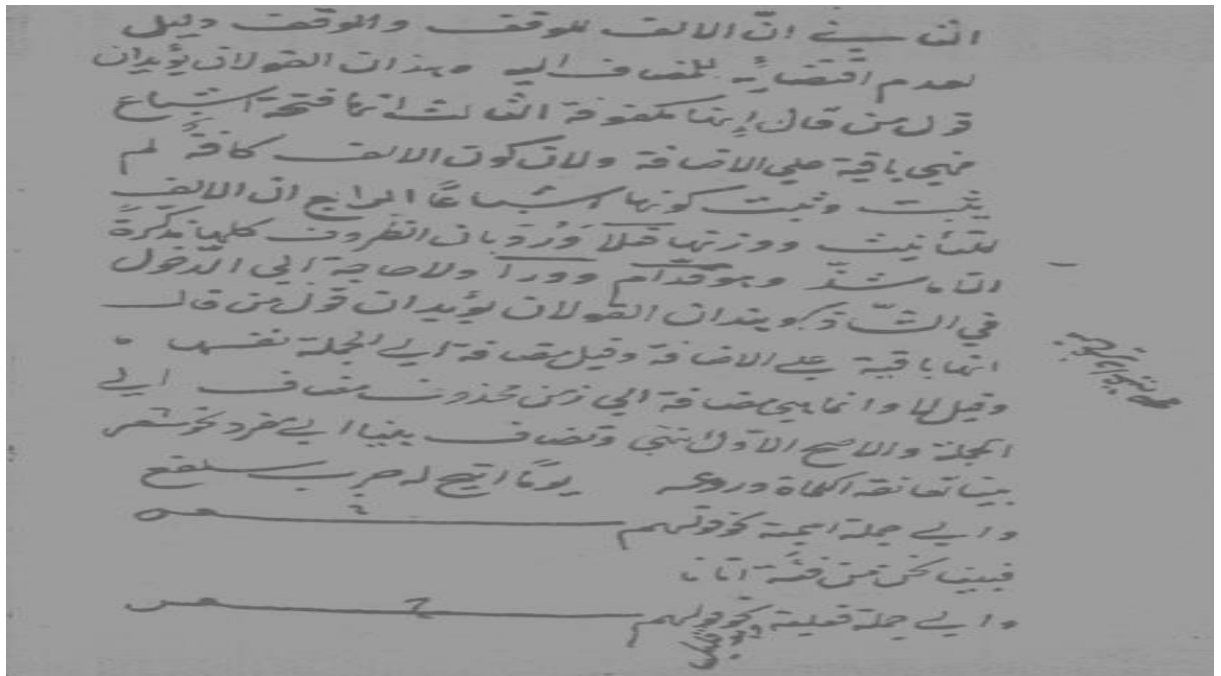 الثاني في انّ الالف للوقف والوقف دليل
لعدم اقتضائه للمضاف اليه وهذان القولان يؤيدان
قول من قال إنها مكفوفة الثالث انها فتحة اشباع
فهي باقية على الاضافة ولان كون الالف كافةً لم
يثبت وثبت كونها اشباعًا الرابع ان الالف
للتأنيث ووزنها فعلا ورُدّ بان الظروف كلها مذكرة
الا ما شذّ وهو قدّام وورا ولا حاجة الى الدّخول
في الشّاذ وهذان القولان يؤيدان قول من قال
انها باقية على الاضافة وقيل مضافة الى الجملة نفسها
وقيل لا وانما هي مضافة الى زمن محذوف مضاف الى
الجملة والاصح الاول انتهى وتضاف بينا الى مفرد نحو شعر
بينا تعانقه الكماة وروغه يومًا اتيح له جرىء سلفع
والى جملة اسمية نحو قولهم
فبينا نحن من فئة اتانا
والى جملة فعلية نحو قولهم